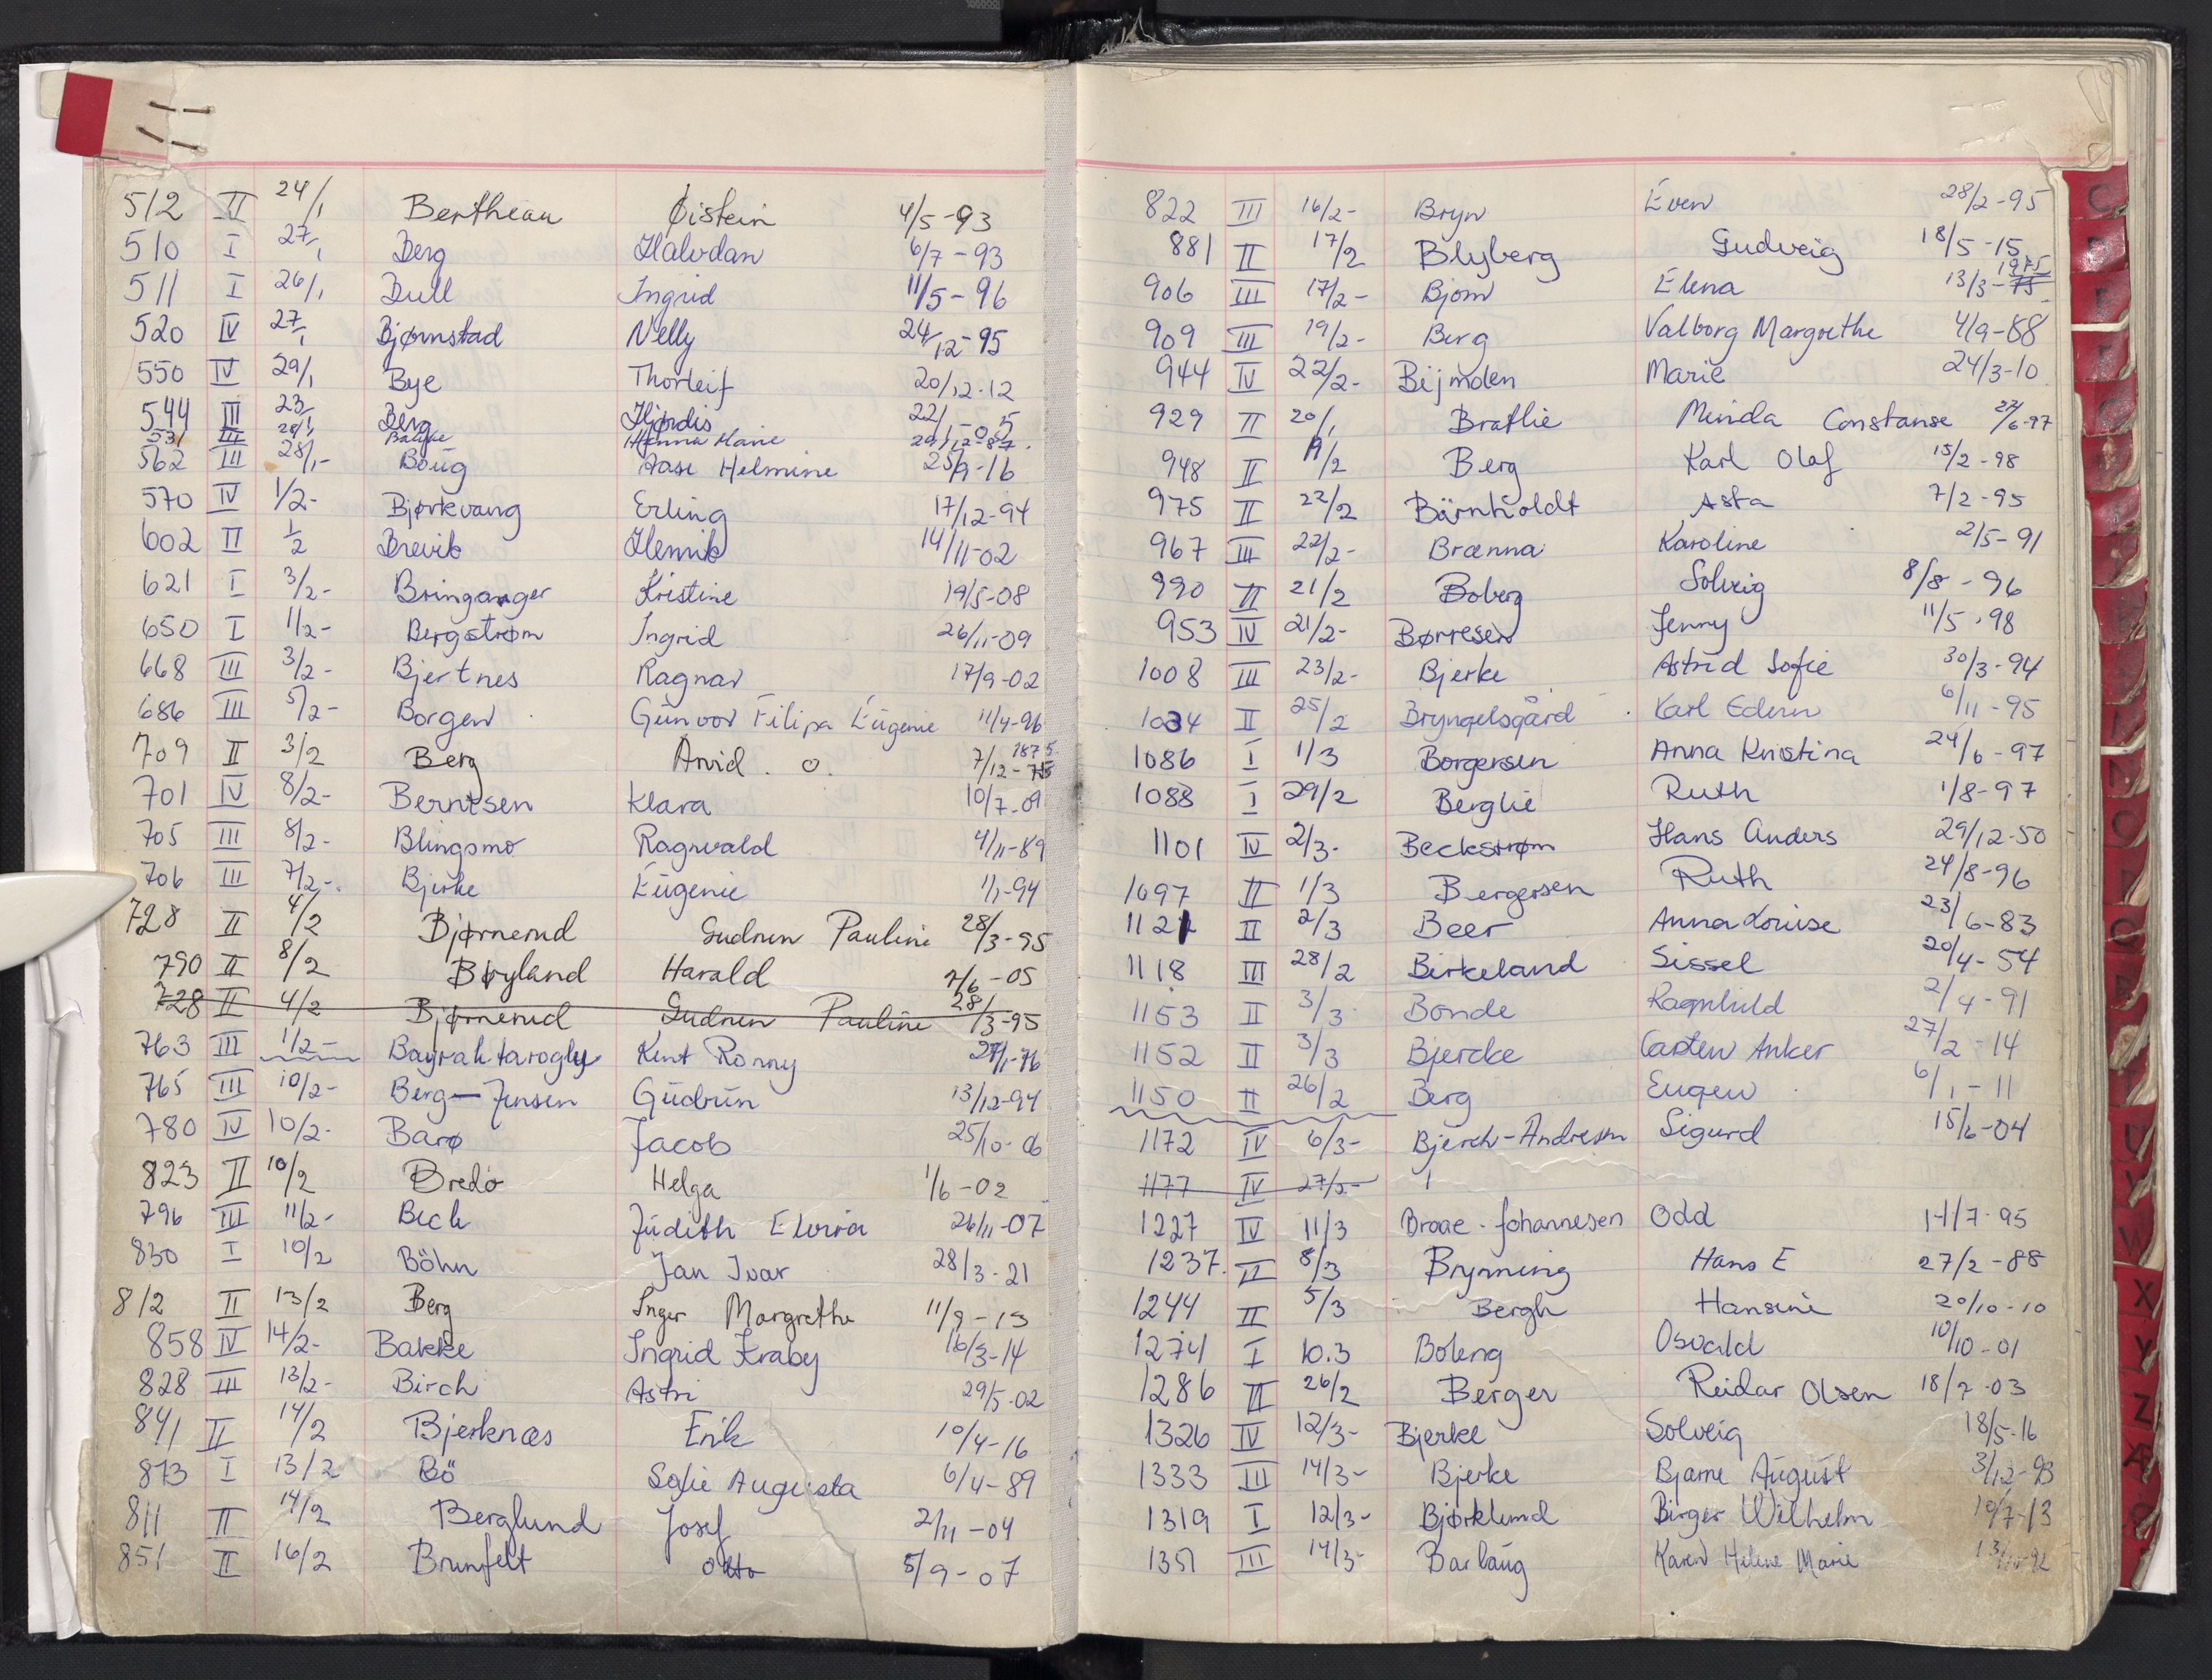 512 II 24/1 Bertheau Øistein 4/5-93
510 I 27/1 Berg Halvdan 6/7-93
511 I 26/1 Bull Ingrid 11/5-96
520 IV 27/1 Bjørnstad Nelly 24/12-95
550 IV 29/1 Bye Thorleif 20/12-12
544 III 23/1 Berg Hjørdis 22/1-05
531 III 28/1 Hanna Marie 29/12-87.
562 III 28/1- Boug Aase Helmine 25/9-16
570 IV 1/2- Bjørkvang Erling 17/12-94
602 II 1/2 Brevik Henrik 14/11-02
621 I 3/2- Bringaker Kristine 19/5-08
650 I 1/2- Bergstrøm Ingrid 26/11-09
668 III 3/2- Bjertnes Ragnar 17/9-02
686 III 5/2- Borgen Gunvor Filipa Eugenie 11/4-96
709 II 3/2 Berg Arvid. O. 7/12-75 1875
701 IV 8/2- Berntsen Klara 10/7-09
705 III 8/2- Blingsmo Ragnvald 4/11-89
706 III 7/2- Bjerke Eugenie 1/1-94
728 II 4/2 Bjørnerud Gudrun Pauline 28/3-95
790 II 8/2 Bøyland Harald 7/6-05
728 II 4/2 Bjørnerud Gudrun Pauline 28/3-95
763 III 1/2- Bayraktaroglu Kent Ronny 27/1-76
765 III 10/2- Berg-Jensen Gudrun 13/12-94
780 IV 10/2- Barø Jacob 25/10-06
823 II 10/2 Bredo Helga 1/6-02
796 III 11/2- Beck Judith Elvira 26/11-07
830 I 10/2 Böhn Jan Ivar 28/3-21
812 II 13/2 Berg Inger Margrethe 11/9-15
858 IV 14/2- Bakke Ingrid Kraby 16/3-14
828 III 13/2- Birch Astri 29/5-02
841 II 14/2 Bjerknæs Erik 10/4-16
873 I 13/2 Bö Sofie Augusta 6/4-89
811 II 14/2 Berglund Josef 2/11-04
851 II 16/2 Brunfelt Otto 5/9-07
822 III 16/2- Bryn Even 28/2-95
881 II 17/2 Blyberg Gudveig 18/5-15
906 III 17/2- Bjom Elena 13/3-75 1975
909 III 19/2- Berg Valborg Margrethe 4/9-88
944 IV 22/2- Marie 24/3-10
929 II 20/1 Bratlie Minda Constanse 27/6-97
948 II 19/2 Berg Karl Olaf 15/2-98
975 II 22/2 Bärnholdt Asta 7/2-95
967 III 22/2- Brænna Karoline 2/5-91
990 II 21/2 Boberg Solveig 8/8-96
953 IV 21/2- Børresen Jenny 11/5-98
1008 III 23/2- Bjerke Astrid Sofie 30/3-94
1034 II 25/2 Bryngelsgård Karl Edvin 6/11-95
1086 I 1/3 Borgersen Anna Kristina 24/6-97
1088 I 29/2 Berglie Ruth 1/8-97
1101 IV 2/3- Beckstrøm Hans Anders 29/12-50
1097 II 1/3 Bergersen Ruth 24/8-96
1121 II 2/3 Beer Anna Louise 23/6-83
1118 III 28/2 Birkeland Sissel 20/4-54
1153 II 3/3 Bonde Ragnhild 2/4-91
1152 II 3/3 Bjercke Carsten Anker 27/2-14
1150 II 26/2 Berg Eugen 6/1-11
1172 IV 6/3- Bjerck-Andresen Sigurd 15/6-04
1177 IV 27/2-
1227 IV 11/3 Braae-Johannesen Odd 14/7-95
1237. II 8/3 Brynning Hans E 27/2-88
1244 II 5/3 Bergh Hansine 20/10-10
1274 I 10.3 Boleng Osvald 10/10-01
1286 II 26/2 Berger Reidar Olsen 18/7-03
1326 IV 12/3- Bjerke Solveig 18/5-16
1333 III 14/3- Bjerke Bjarne August 3/12-93
1319 I 12/3- Bjørklund Birger Wilhelm 10/7-13
1351 III 14/3- Barlaug Karen Helene Marie
C
O
U
V
W
X
Y
Z
Æ
Ø